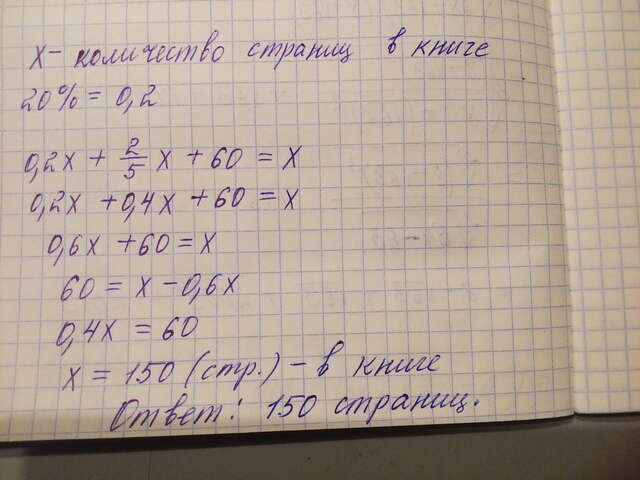 x - количество страниц в книге
20% = 0,2
0,2x + 2/5 x + 60 = x
0,2x + 0,4x + 60 = x
0,6x + 60 = x
60 = x - 0,6x
0,4x = 60
x = 150 (стр.) - в книге
Ответ: 150 страниц.